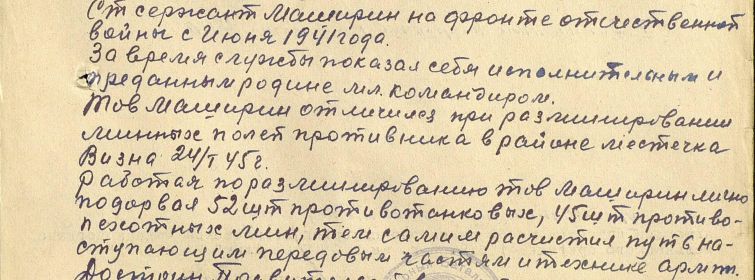 Ст сержант Маширин на фронте отечественной
войны с Июня 1941 года.
За время службы показал себя исполнительным и
преданным родине мл. командиром.
Тов Маширин отличился при разминировании
минных полей противника в районе местечка
Визна 24/I 45 г.
Работая по разминированию тов Маширин лично
подорвал 52 шт противотанковых, 45 шт противо-
пехотных мин, тем самим расчистил путь на-
ступающим передовым частям и технике армии.
Достоин